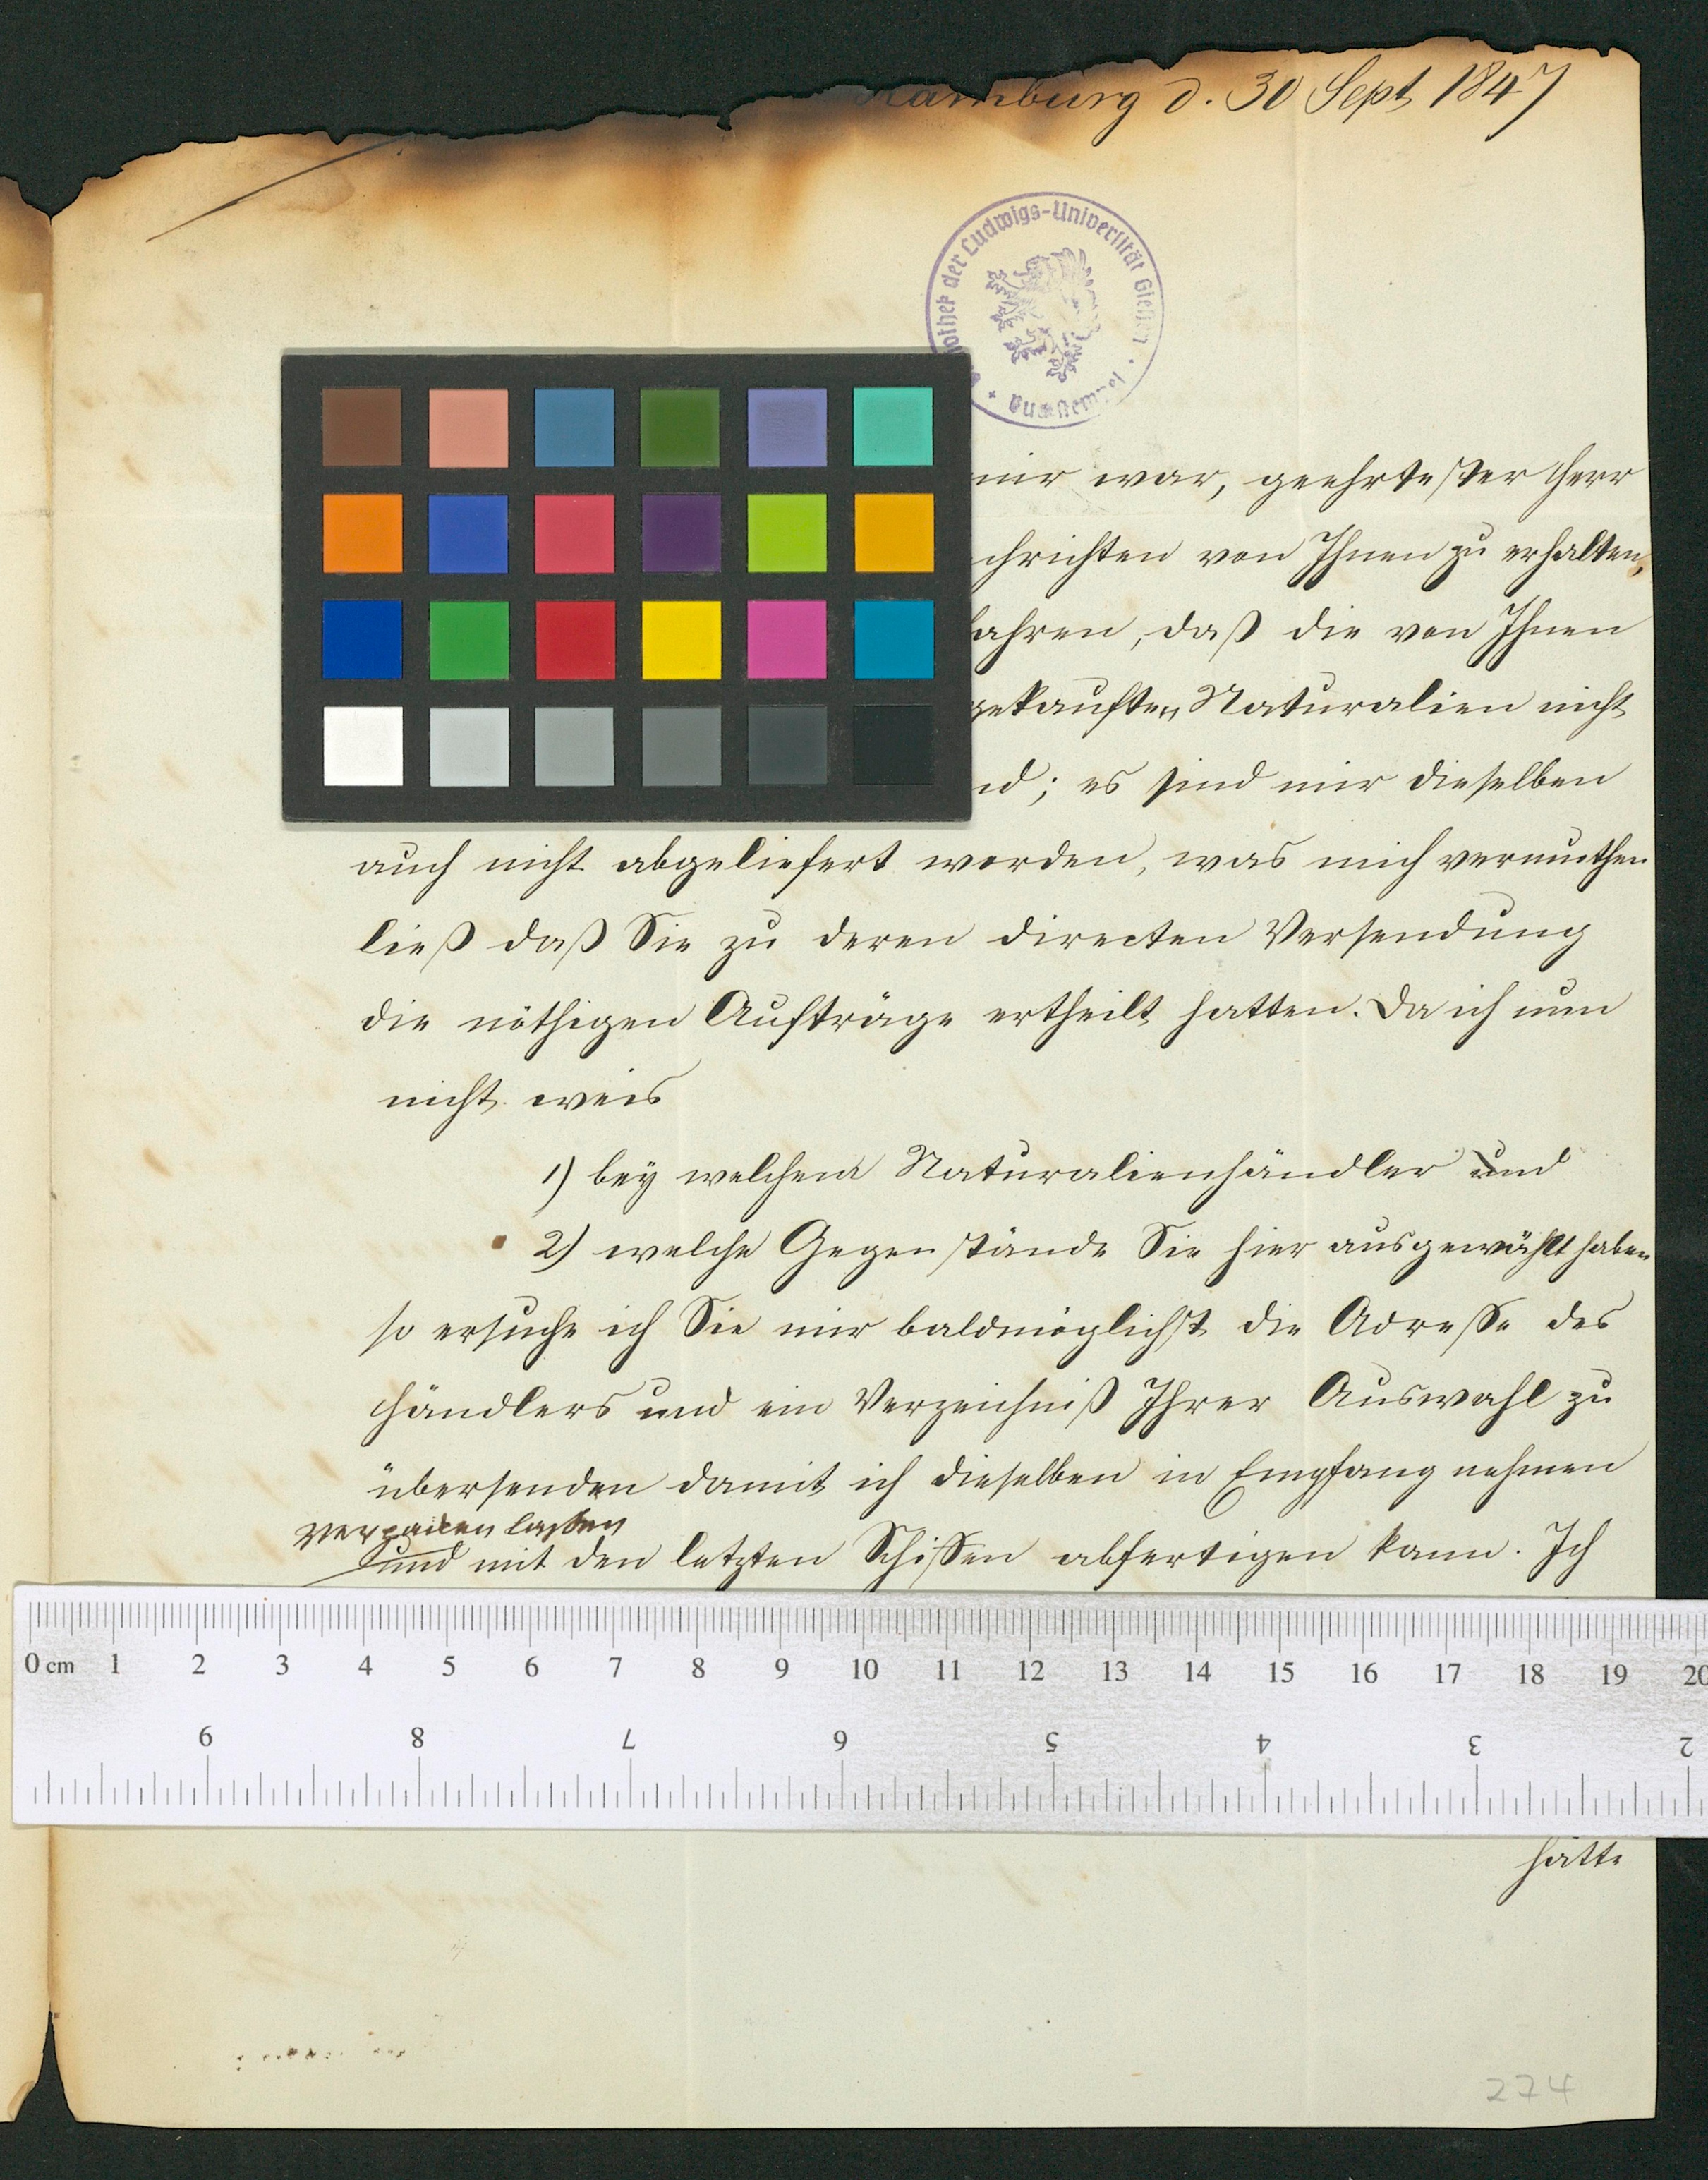 Hamburg d. 30 Sept 1847
der Ludwigs-Universität Gießen
mir war, geehrtester Herr
chrichten von Ihnen zu erhalten,
fahren, daß die von Ihnen
gekauften Naturalien nicht
nd; es sind mir dieselben
auch nicht abgeliefert worden, was mich vermuthen
ließ daß Sie zu deren directen Versendung
die nöthigen Aufträge ertheilt hatten. Da ich nun
nicht weis
1) bey welchem Naturalienhändler und
2) welche Gegenstände Sie hier ausgewählt haben
so ersuche ich Sie mir baldmöglichst die Adresse des
Händlers und ein Verzeichniß Ihrer Auswahl zu
übersenden damit ich dieselben in Empfang nehmen
verpacken lassen
und mit den letzten Schiffen abfertigen kann. Ich
0 cm 1 2 3 4 5 6 7 8 9 10 11 12 13 14 15 16 17 18 19 20
9 8 7 6 5 4 3 2
hätte
274